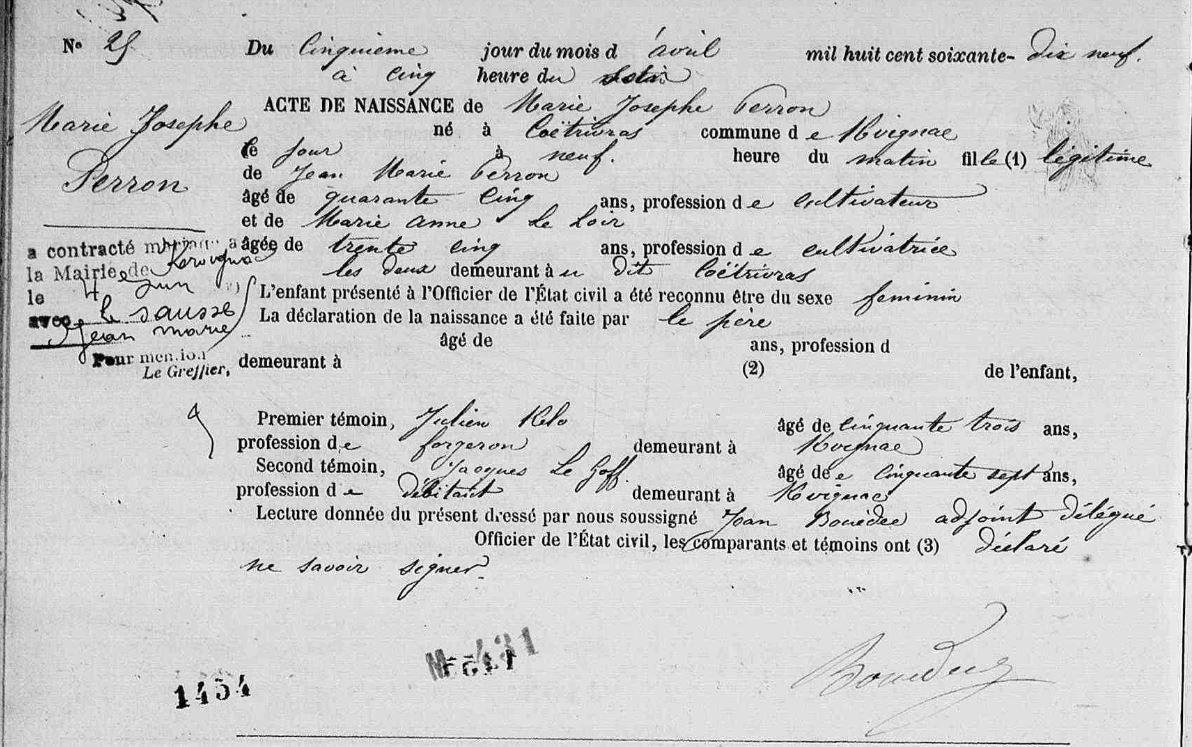 N° 25
Du Cinquième jour du mois d'avril mil huit cent soixante-dix neuf.
à cinq heure du soir
ACTE DE NAISSANCE de Marie Josephe Perron
né à Coëtrivras commune de Kvignac
le jour à neuf. heure du matin fille (1) légitime
de Jean Marie Perron
âgé de quarante cinq ans, profession de cultivateur
et de Marie Anne Le Loir
âgée de trente cinq ans, profession de cultivatrice
les deux demeurant à u dit Coëtrivras
L'enfant présenté à l'Officier de l'État civil a été reconnu être du sexe feminin
La déclaration de la naissance a été faite par le père
âgé de ans, profession d
demeurant à (2) de l'enfant,
Premier témoin, Julien Kelo âgé de cinquante trois ans,
profession de forgeron demeurant à Kvignac
Second témoin, Jacques Le Goff. âgé de cinquante sept ans,
profession de débitant demeurant à Kvignac
Lecture donnée du présent dressé par nous soussigné Jean Bouédec adjoint délégué
Officier de l'État civil, les comparants et témoins ont (3) déclaré
ne savoir signer.
Marie Josephe
Perron
a contracté mariage à
la Mairie de
le 4 Juin
avec le sausse
jean marie
Pour mention
Le Greffier,
1454